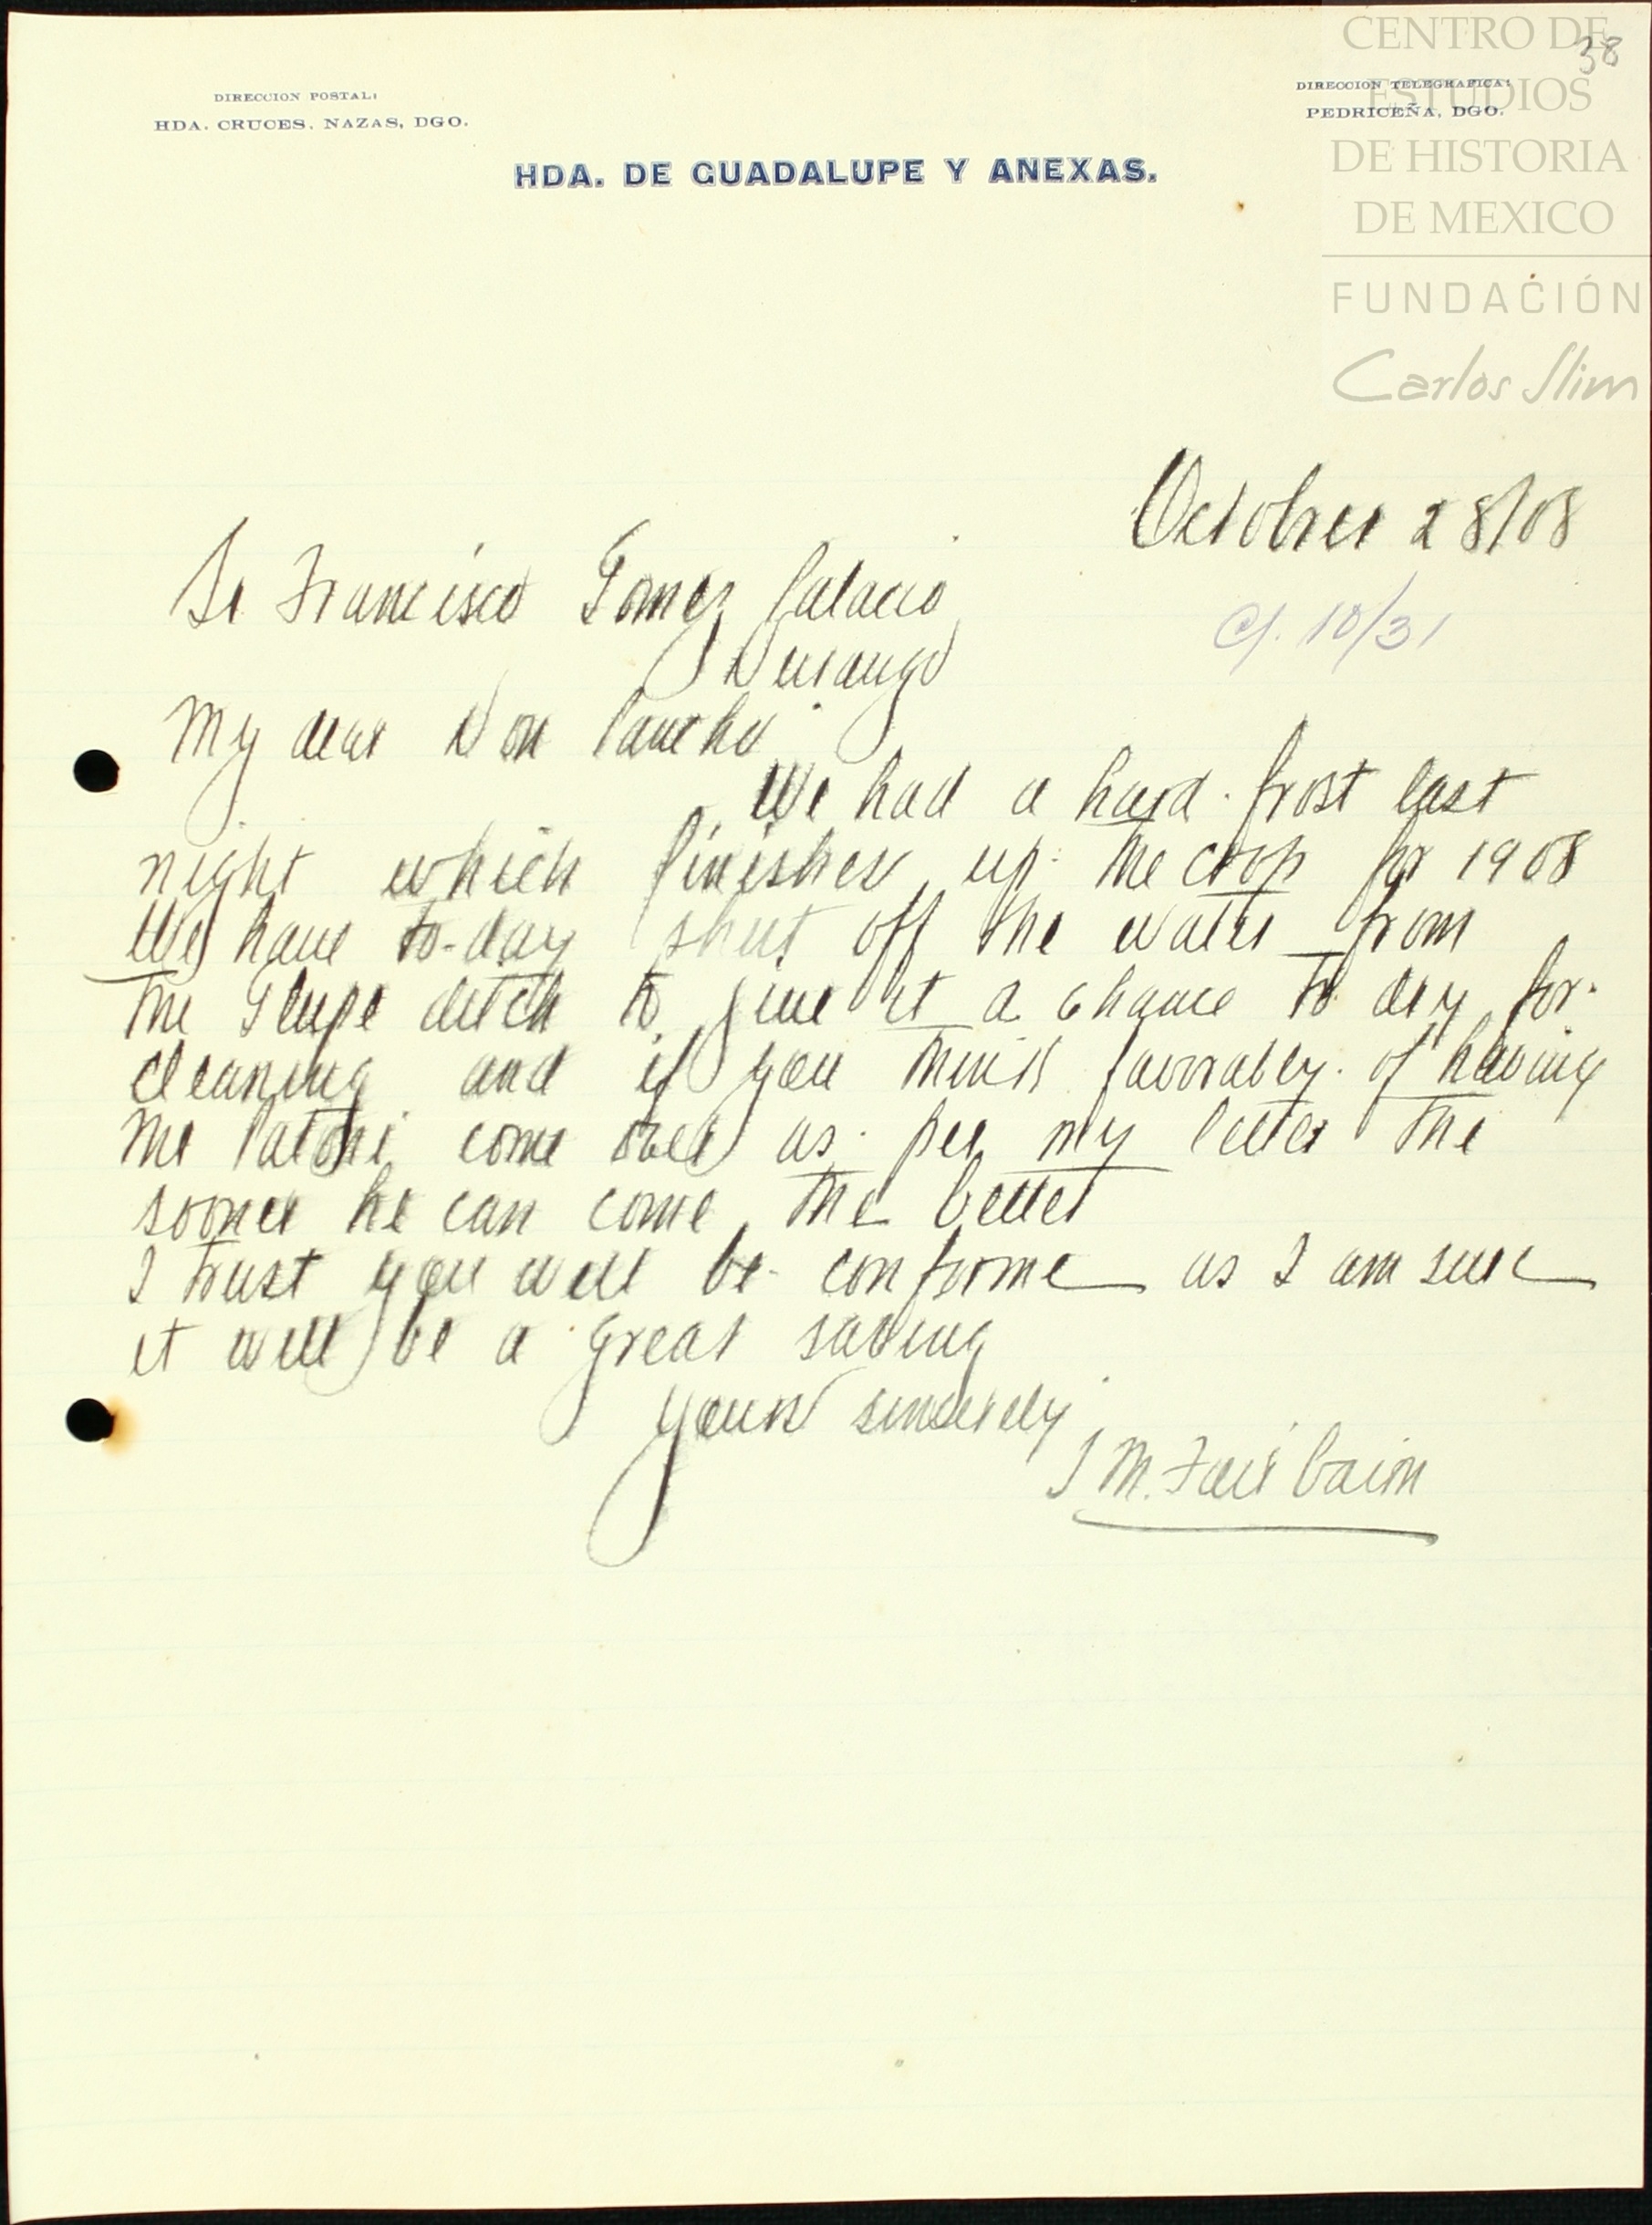 CENTRO DE
ESTUDIOS
DE HISTORIA
DE MEXICO
FUNDACIÓN
Carlos Slim
38
DIRECCION POSTAL:
HDA. CRUCES, NAZAS, DGO.
DIRECCION TELEGRAFICA:
PEDRICEÑA, DGO.
HDA. DE GUADALUPE Y ANEXAS.
October 28/08
C/. 10/31
Sr Francisco Gomez Palacio
Durango
My dear Don Pancho
We had a hard frost last
night which finishes up the crop for 1908
We have to-day shut off the water from
the Glupe ditch to give it a chance to dry for
cleaning and if you think favorably of having
Mr Patoni come over as per my letter the
sooner he can come the better
I trust you will be conforme as I am sure
it will be a great saving
yours sincerely
J M. Fairbairn